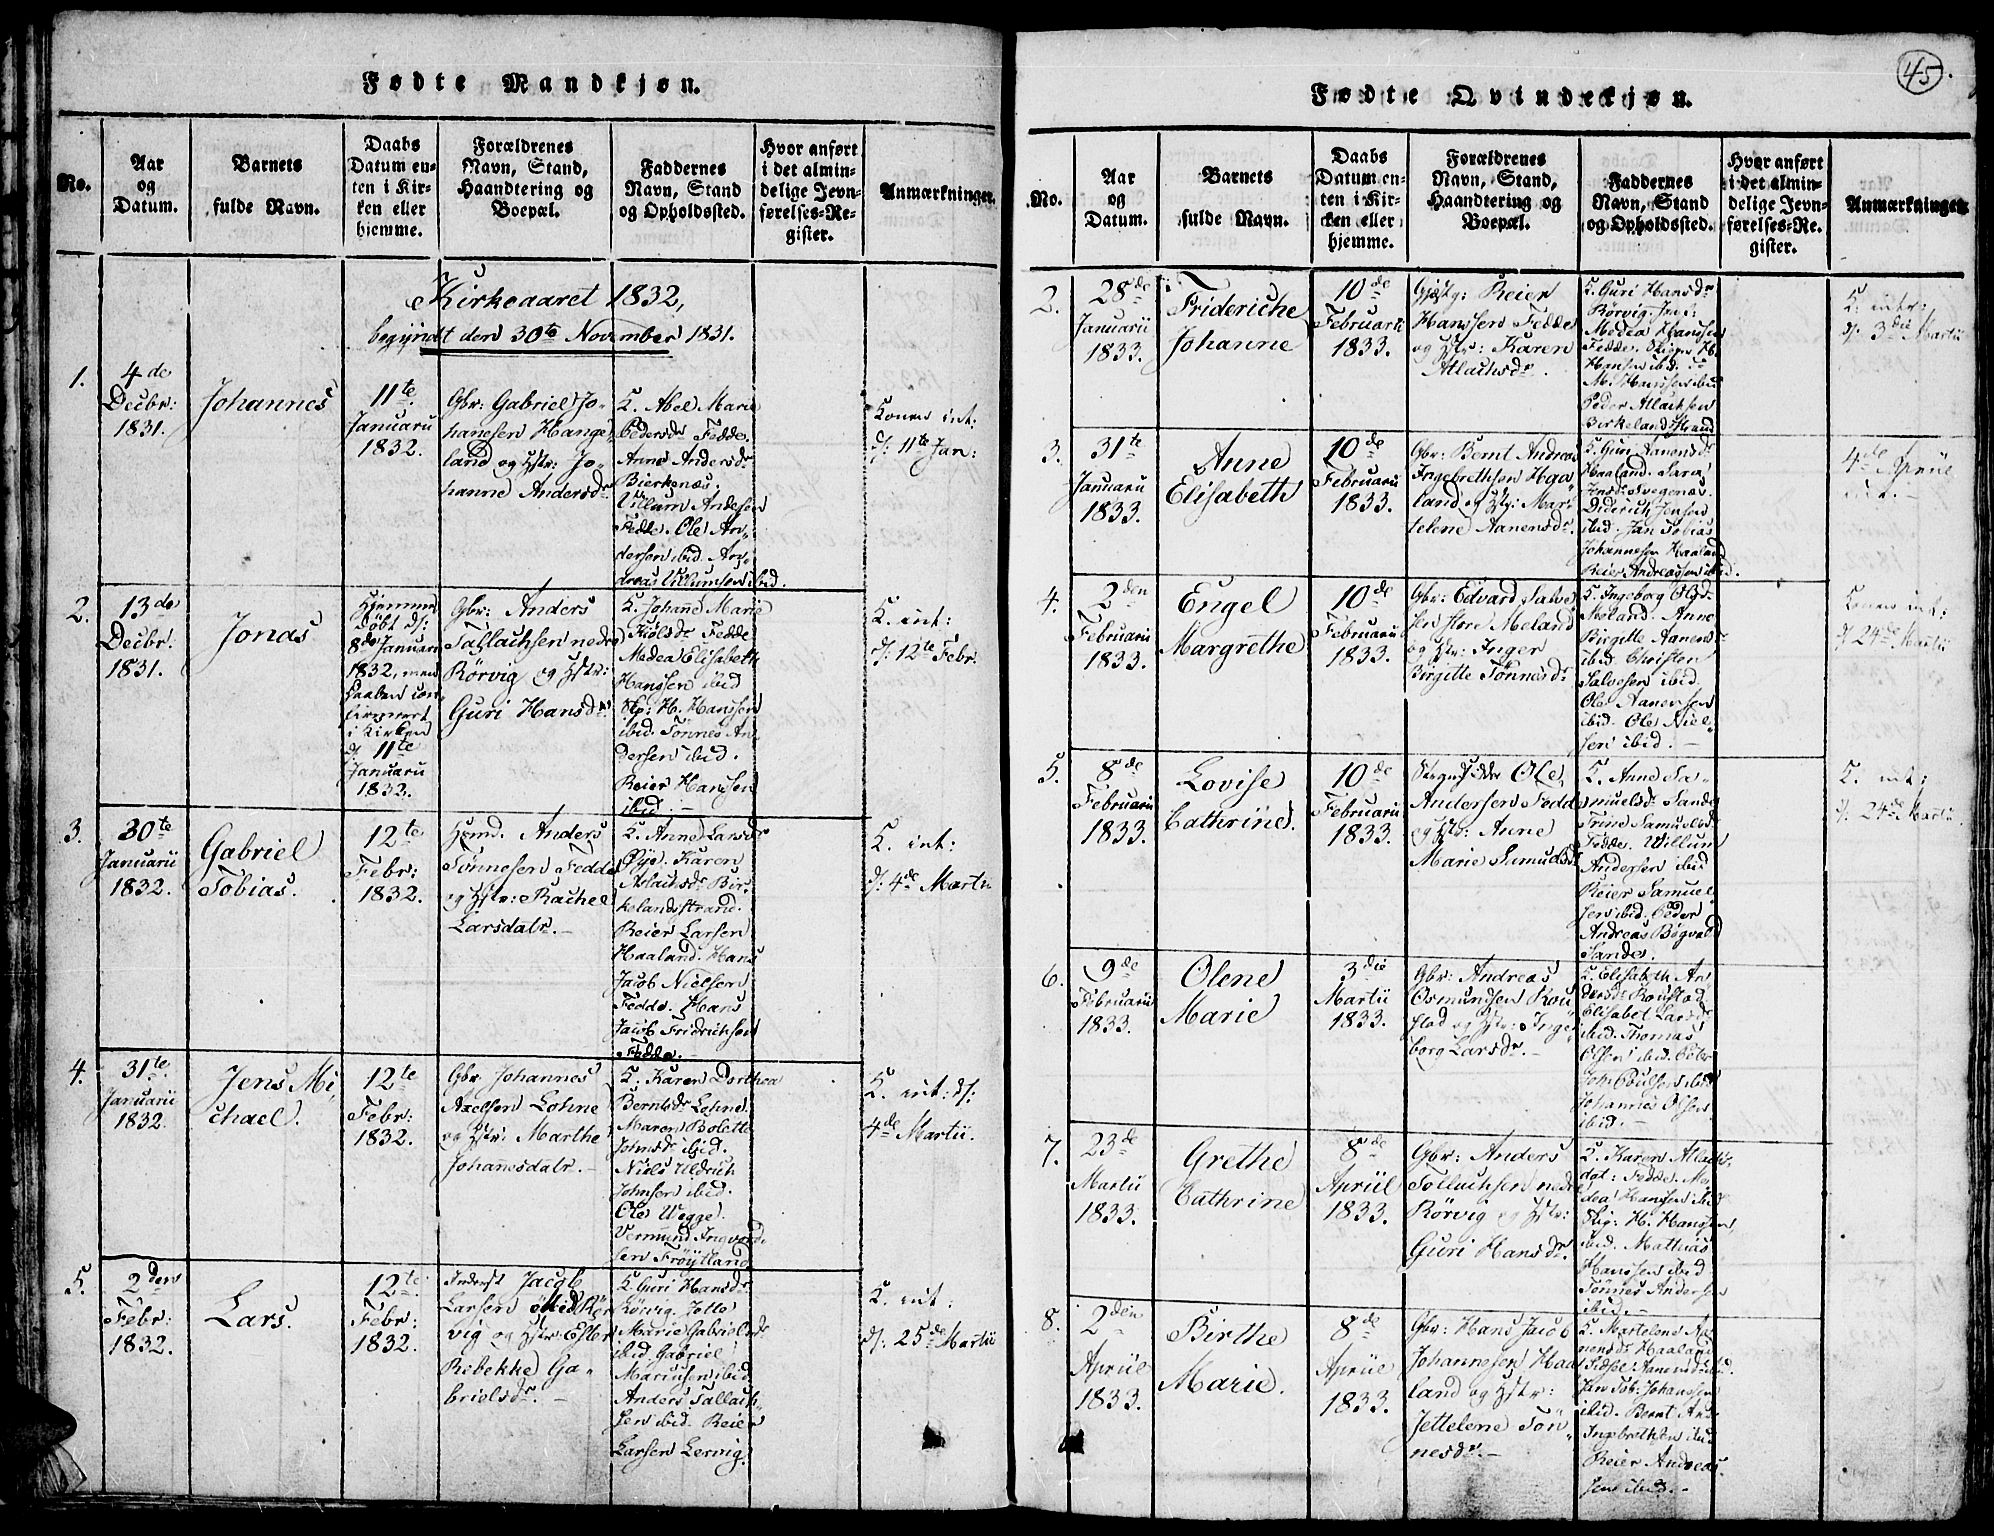 Fødte Mandkjøn.
No.
Aar
og
Datum.
Barnets
fulde Navn.
Daabs
Datum en-
ten i Kir-
ken eller
hjemme.
Forældrenes
Navn, Stand,
Haandtering og
Boepæl.
Faddernes
Navn, Stand
og Opholdssted.
Hvor anført
i det almin-
delige Jevn-
førelses-Re-
gister.
Anmærkninger.
Kirkeaaret 1832,
begyndt den 30te November 1831.
1.
4de
Decbr:
1831.
Johannes
11te
Januarii
1832.
Gbr: Gabriel Jo-
hanesen Hange-
land og Hstr: Jo-
hanne Andersdr.
K. Abel Marie
Pedersdr Fedde.
Anne Andersdr
Bierkenæs.
Villum Andersen
Fedde. Ole An-
dersen ibid. An-
dreas Villumsen ibid.
Konen int:
d: 11te Jan:
2.
13de
Decbr:
1831.
Jonas
Hjemme
døbt d:
8de Januar
1832, men
Daaben con-
firmert
i Kirken
d. 11te
Januarii
1832.
Gbr: Anders
Tallachsen nedre
Rørvig og Hstr:
Guri Hansdr.
K. Johane Marie
Kiølsdr Fedde
Medea Elisabeth
Hanssen ibid
Skp: H. Hanssen
ibid. Tønnes An-
dersen ibid.
Reier Hanssen
ibid. —
K. int:
d: 12te Febr.
3.
30te
Januarii
1832.
Gabriel
Tobias.
12te
Febr:
1832.
Hmd. Anders
Tønnesen Fedde
og Hstr: Rachel
Larsdatr. —
K. Anne Larsdr
Øye. Karen
Aslachsdr Bir-
kelandsstrand.
Reier Larsen
Haaland. Hans
Jacob Nielsen
Fedde. Hans
Jacob Fridrichsen
Fedde. —
K. int:
d: 4de Martii
4.
31te
Januarii
1832.
Jens Mi-
chael.
12te
Febr:
1832.
Gbr Johannes
Axelsen Lohne
og Hstr: Marthe
Johanesdatr. —
K. Karen Dorthea
Berntsdr Lohne.
Maren Bolette
Johnsdr ibid.
Niels Uldrich
Johnsen ibid.
Ole Wegge.
Vermund Ingvord-
sen Frøytland
K. int: d:
4de Martii.
5.
2den
Febr:
1832.
Lars.
12te
Febr:
1832.
Inderst Jacob
Larsen Rør-
vig og Hstr: Ester
Rebekke Ga-
brielsdr. —
K. Guri Hansdr
Rørvig. Jotte
Marie Gabrielsdr
ibid Gabriel
Mariusen ibid
Anders Tallach-
sen ibid. Reier
Larsen Lervig.
K. int:
d: 25de Martii
45.
Fødte Qvindekjøn.
No.
Aar
og
Datum.
Barnets
fulde Navn.
Daabs
Datum en-
ten i Kir-
ken eller
hjemme.
Forældrenes
Navn, Stand,
Haandtering og
Boepæl.
Faddernes
Navn, Stand
og Opholdssted.
Hvor anført
i det almin-
delige Jevn-
førelses-Re-
gister.
Anmærkninger.
2.
28de
Januarii
1833.
Frideriche
Johanne
10de
Februarii
1833.
Gjestg: Reier
Hanssen Fedde
og Hstr: Karen
Atlachsdr.
K. Guri Hansdr
Rørvig. Jfr:
Medea Hanssen
Fedde. H.
Hansen ibid.
M. Hanssen ibid
Peder Atlachsen
Birkeland Strand
K. intr:
d: 3die Martii
3.
31te
Januarii
1833.
Anne
Elisabeth
10de
Februarii
1833.
Gbr: Bernt Andreas
Ingebrethsen Haa-
land og Hstr: Mar-
telene Aanensdr.
K. Guri Aanensdr
Haaland. Sara
Jensdr Svegenæs.
Diderich Jensen
ibid. Jan Tobias
Johannesen Haaland
Reier Andreassen ibid.
4de Apriil
int. —
4.
2den
Februarii
1833.
Engel
Margrethe
10de
Februarii
1833.
Gbr: Edvard Salve-
sen store Meland
og Hstr: Inger
Birgitte Tønnesdr
K. Ingeborg Olsdr
Meland. Anne
Birgitte Aanensdr
ibid. Christen
Salvesen ibid.
Ole Aanensen
ibid. Ole Niel-
sen ibid. —
Konen int:
d 24de Martii
5.
8de
Februarii
1833.
Lovise
Cathrine.
10de
Februarii
1833.
Ole
Andersen Fedde
og Hstr: Anne
Marie Samuelsdr
K. Anne Sa-
muelsdr Sande
Trine Samuelsdr
Fedde. Willum
Andersen ibid
Reier Samuel-
sen ibid. Peder
Andreas Bøgvald
Sande.
K. int:
d. 24de Martii.
6.
9de
Februarii
1833.
Olene
Marie
3die
Martii
1833.
Gbr: Andreas
Osmundsen Rou-
stad og Hstr: Inge-
borg Larsdr. —
K. Elisabeth An-
dersdr Roustad
Elisabet Larsdr
ibid. Thomas
Olsen ibid. Peder
John Poulsen ibid
Johannes Olsen
ibid. —
7.
23de
Martii
1833.
Grethe
Cathrine
8de
Apriil
1833.
Gbr: Anders
Tollachsen nedre
Rørvig og Hstr:
Guri Hansdr.
K. Karen Atlachs-
dat: Fedde. Me-
dea Hanssen ibid
Skip: H. Hanssen,
ibid. Mathias
Hanssen ibid
Tønnes Andersen
ibid. —
8.
2den
Apriil
1833.
Birthe
Marie.
8de
Apriil
1833.
Gbr: Hans Jacob
Johannesen Haa-
land og Hstr:
Jettelene Tøn-
nesdr. —
K. Martelene Aa-
nensdr Haaland
Sidsel Aanensdr ibid.
Jan Tob: Johanssen
ibid. Bernt And:
Ingebrethsen ibid
Reier Andreas-
sen ibid. —